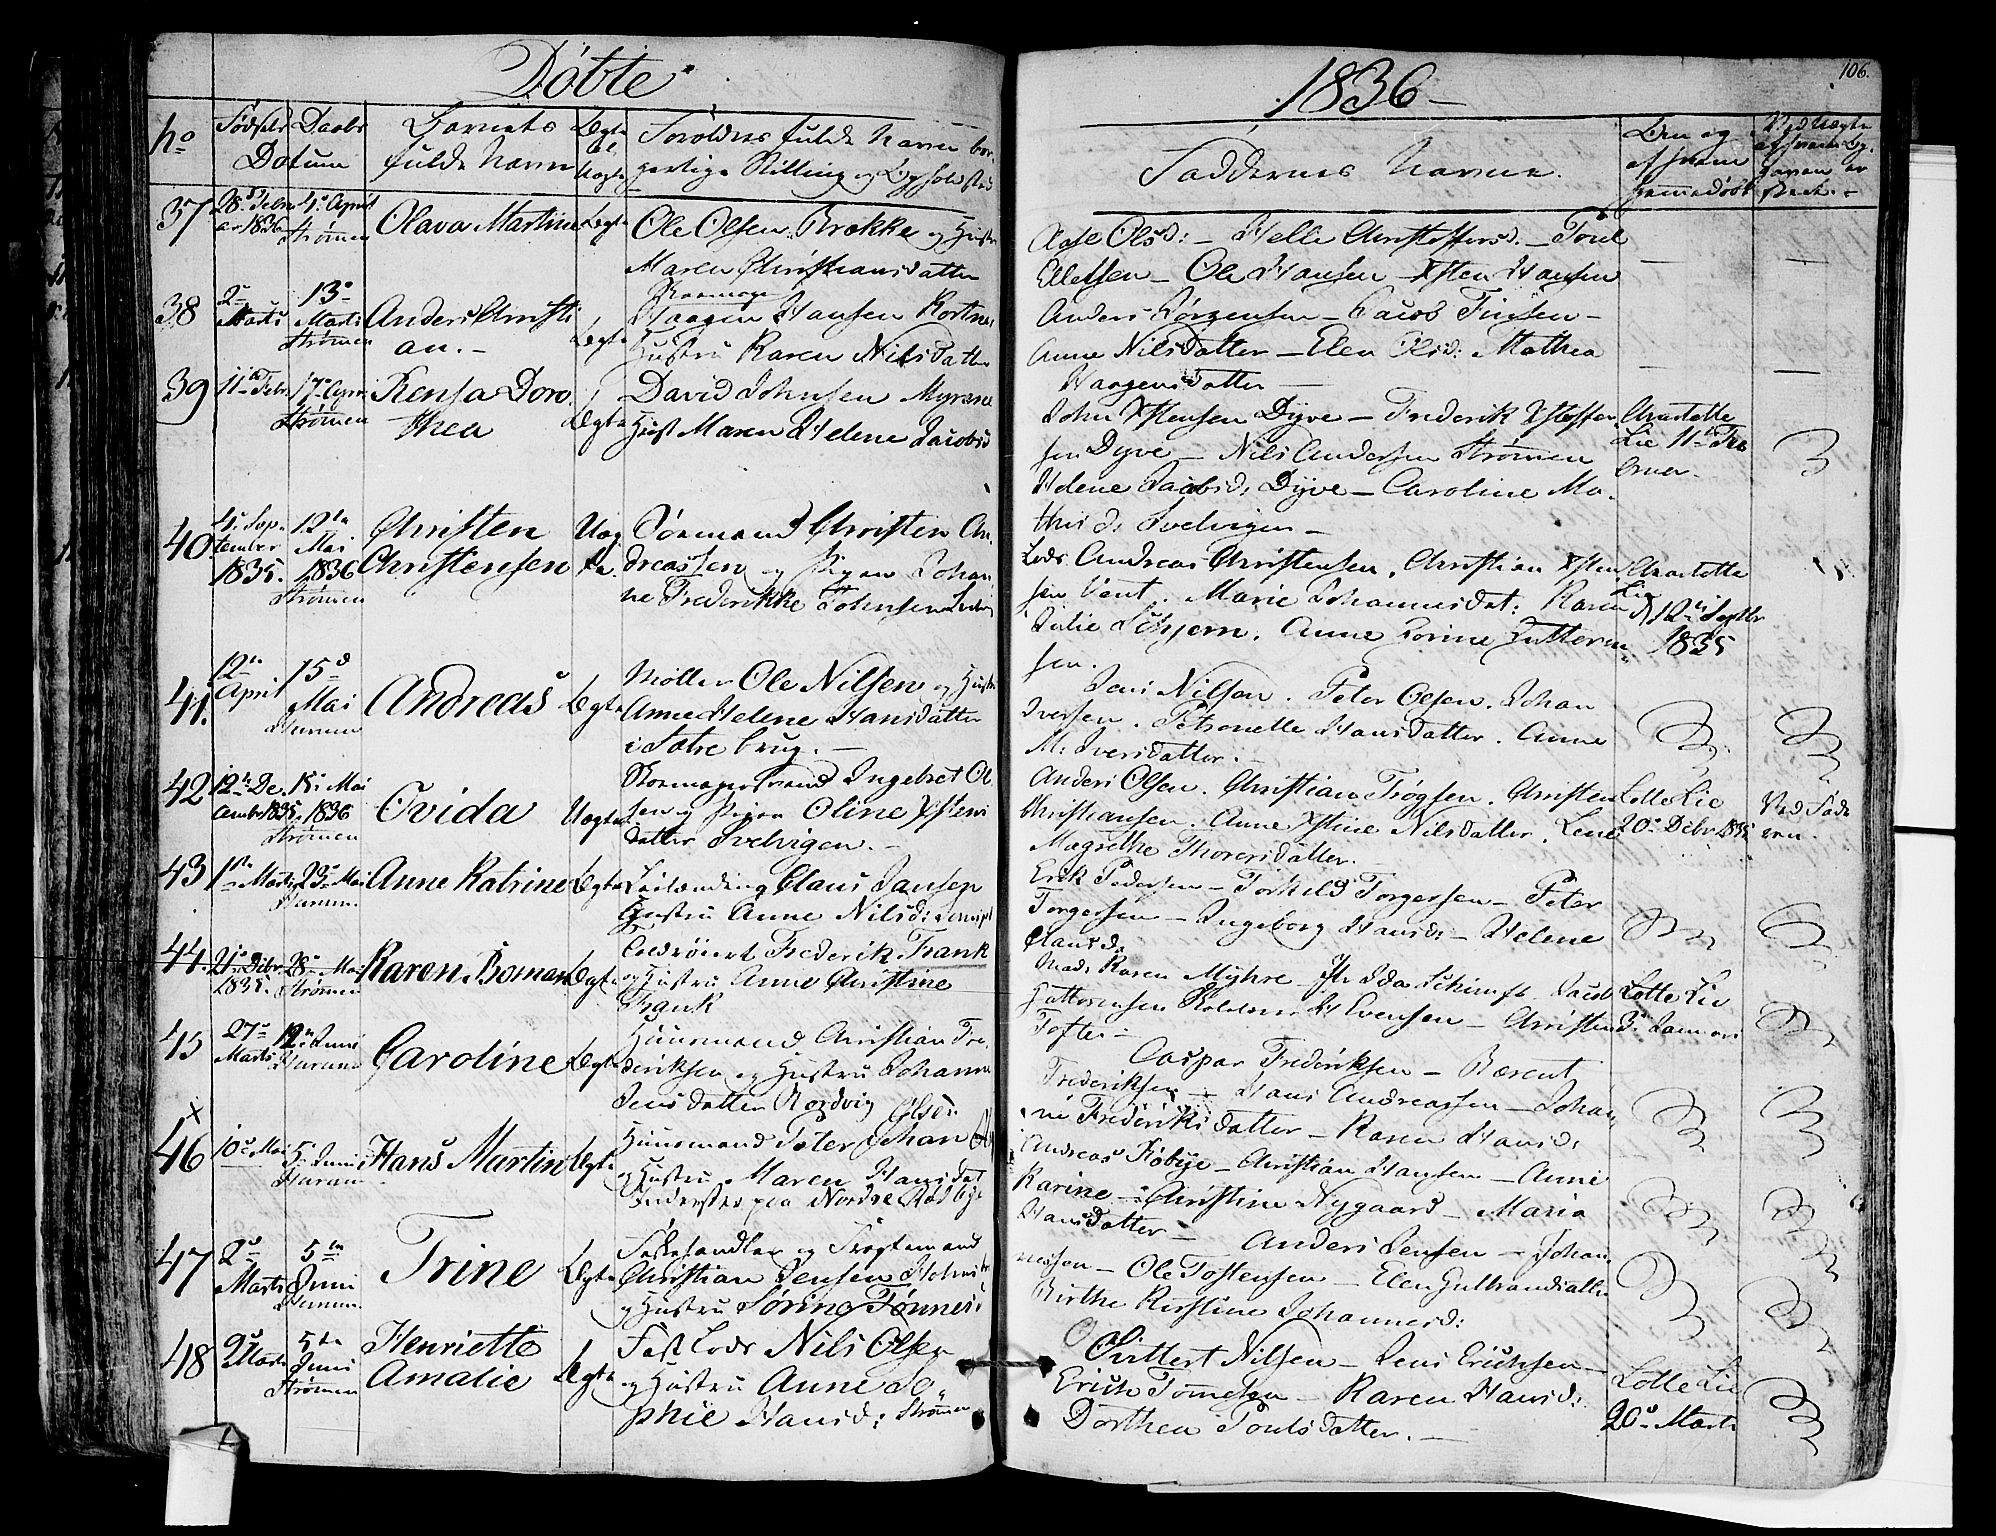 Døbte
1836
106.
No
Fødsels Daabs
Datum
Barnets
fulde Navn
Ægte
el.
Uægte
Forældres fulde Navne bor-
gerlige Stilling og Opholdsted
Faddernes Navne.
37
28d Febru
ar 1836
4de April
Strømmen
Olava Martine
Ægte
Ole Olsen Brække og Hustru
Maren Christiansdatter
Olsd: – Helle Christoffersd. – Poul
Ellefsen – Ole Hansen – Xsten Hansen
38
2den
Marts
13de
Marts
Strømmen
Anders Christi
an. –
Ægte
Haagen Hansen Kortnes
Hustru Karen Nilsdatter
Anders Jørgensen – Jacob –
Anne Nilsdatter – Elen Olsd: Mathea
Haagensdatter –
39
11te Febr
17de April
Strømmen
Kensa Doro
thea
Ægte
David Johnsen Myrene
Hust Maren Helene Jacobsd
John Xstensen Dyve – Frederik Xstoffer
sen Dyve – Nils Andersen Strømmen
Helene Jacobsd: Dyve – Caroline Ma-
thisd: Svelvigen –
Charlotte
Lie 11te Fe
bruar
40
4de Sep-
tember
1835.
12te
Mai
1836
Strømmen
Christen
Christensen
Uæg
te.
Sømand Christen An-
dreassen og Pigen Johan
ne Frederikke Johnsen
Andreas Christensen, Christian Xsten
sen Vent. Marie Johannesdat: Karen
Julie Schjern. Anne
sen.
Charlotte
Lie
12te Septbr
1835
41.
12te
April
15d
Mai
Hurum
Andreas
Ægte
Møller Ole Nilsen og Hustru
Anne Helene Hansdatter
i Sætre brug. –
Jens Nilsen. Peter Olsen. Johan
Iversen. Petronelle Hansdatter. Anne
M. Iversdatter. –
42
12te De-
cember 1835.
15de Mai
1836
Strømmen
Ovida
Uægte
Skomagersvend Ingebret Ol
sen og Pigen Oline Xstens
datter Svelvigen. –
Anders Olsen. Christian Trøgsen. Christen
Christiansen. Anne Xstine Nilsdatter. Lene
Magrethe Thorersdatter.
Lotte Lie
20de Decbr 1835
Ved Fade
ren.
43
1ste Marts
23de Mai
Hurum
Anne Katrine
Ægte
Leilænding Claus Jansen
Hustru Anne Nilsd:
Erik Pedersen – Torkild Torgersen – Peter
Torgersen – Ingeborg Hansd: – Helene
Hansd:
44.
21de Decbr
1835.
28de Mai
Strømmen
Karen Boman
Ægte
Toldrorer Frederik Frank
og Hustru Anne Christine
Frank
Mad: Karen Myhre – Ida Schimft – Jacob
Guttormsen Evensen – Christen
Tofte –
Lotte Lie
3de Januari
45
27de
Marts
12te Juni
Hurum
Caroline
Ægte
Huusmand Christian Fre-
deriksen og Hustru Johanne
Jensdatter Nordvig
Caspar Frederiksen – Berent
Frederiksen – Hans Andreassen – Johan-
ne Frederiksdatter – Karen Hansd:
x
46
10de Mai
5te Juni
Hurum
Hans Martin
Ægte
Huusmand Peter Johan Olsen
og Hustru Maren Hansdat
Inderster paa Nordre Rødbye
Andreas Røbye – Christian Hansen – Anne
Karine – Christine Nygaard – Maria
Hansdatter –
47
2den
Marts
5te
Juni
Hurum
Trine
Ægte
Fiskehandler og Frugtmand
Christian Jensen Holms
og Hustru Sørine Tønnesd
Anders Jensen – Johan-
nessen – Ole Tostensen – Elen Gulbrandsdatter
Birthe Kirstine Johannesd:
48
2den Marts
5te
Juni
Strømmen
Henriette
Amalie
Ægte
Fast Lods Nils Olsen
og Hustru Anne So-
phie Hansd: Strømmen
Nilsen – Jens Erichsen –
Erich Tønnesen – Karen Hansd:
Dorthea Poulsdatter. –
Lotte Lie
20de Marts